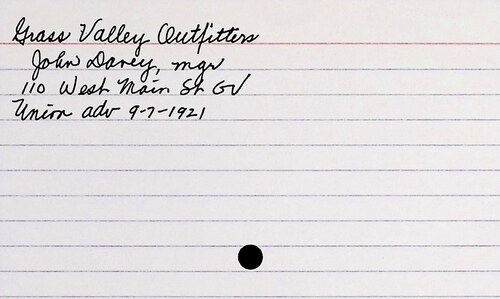 Grass Valley Outfitters
John Davey, mgr
110 West Main St GV
Union adv 9-7-1921